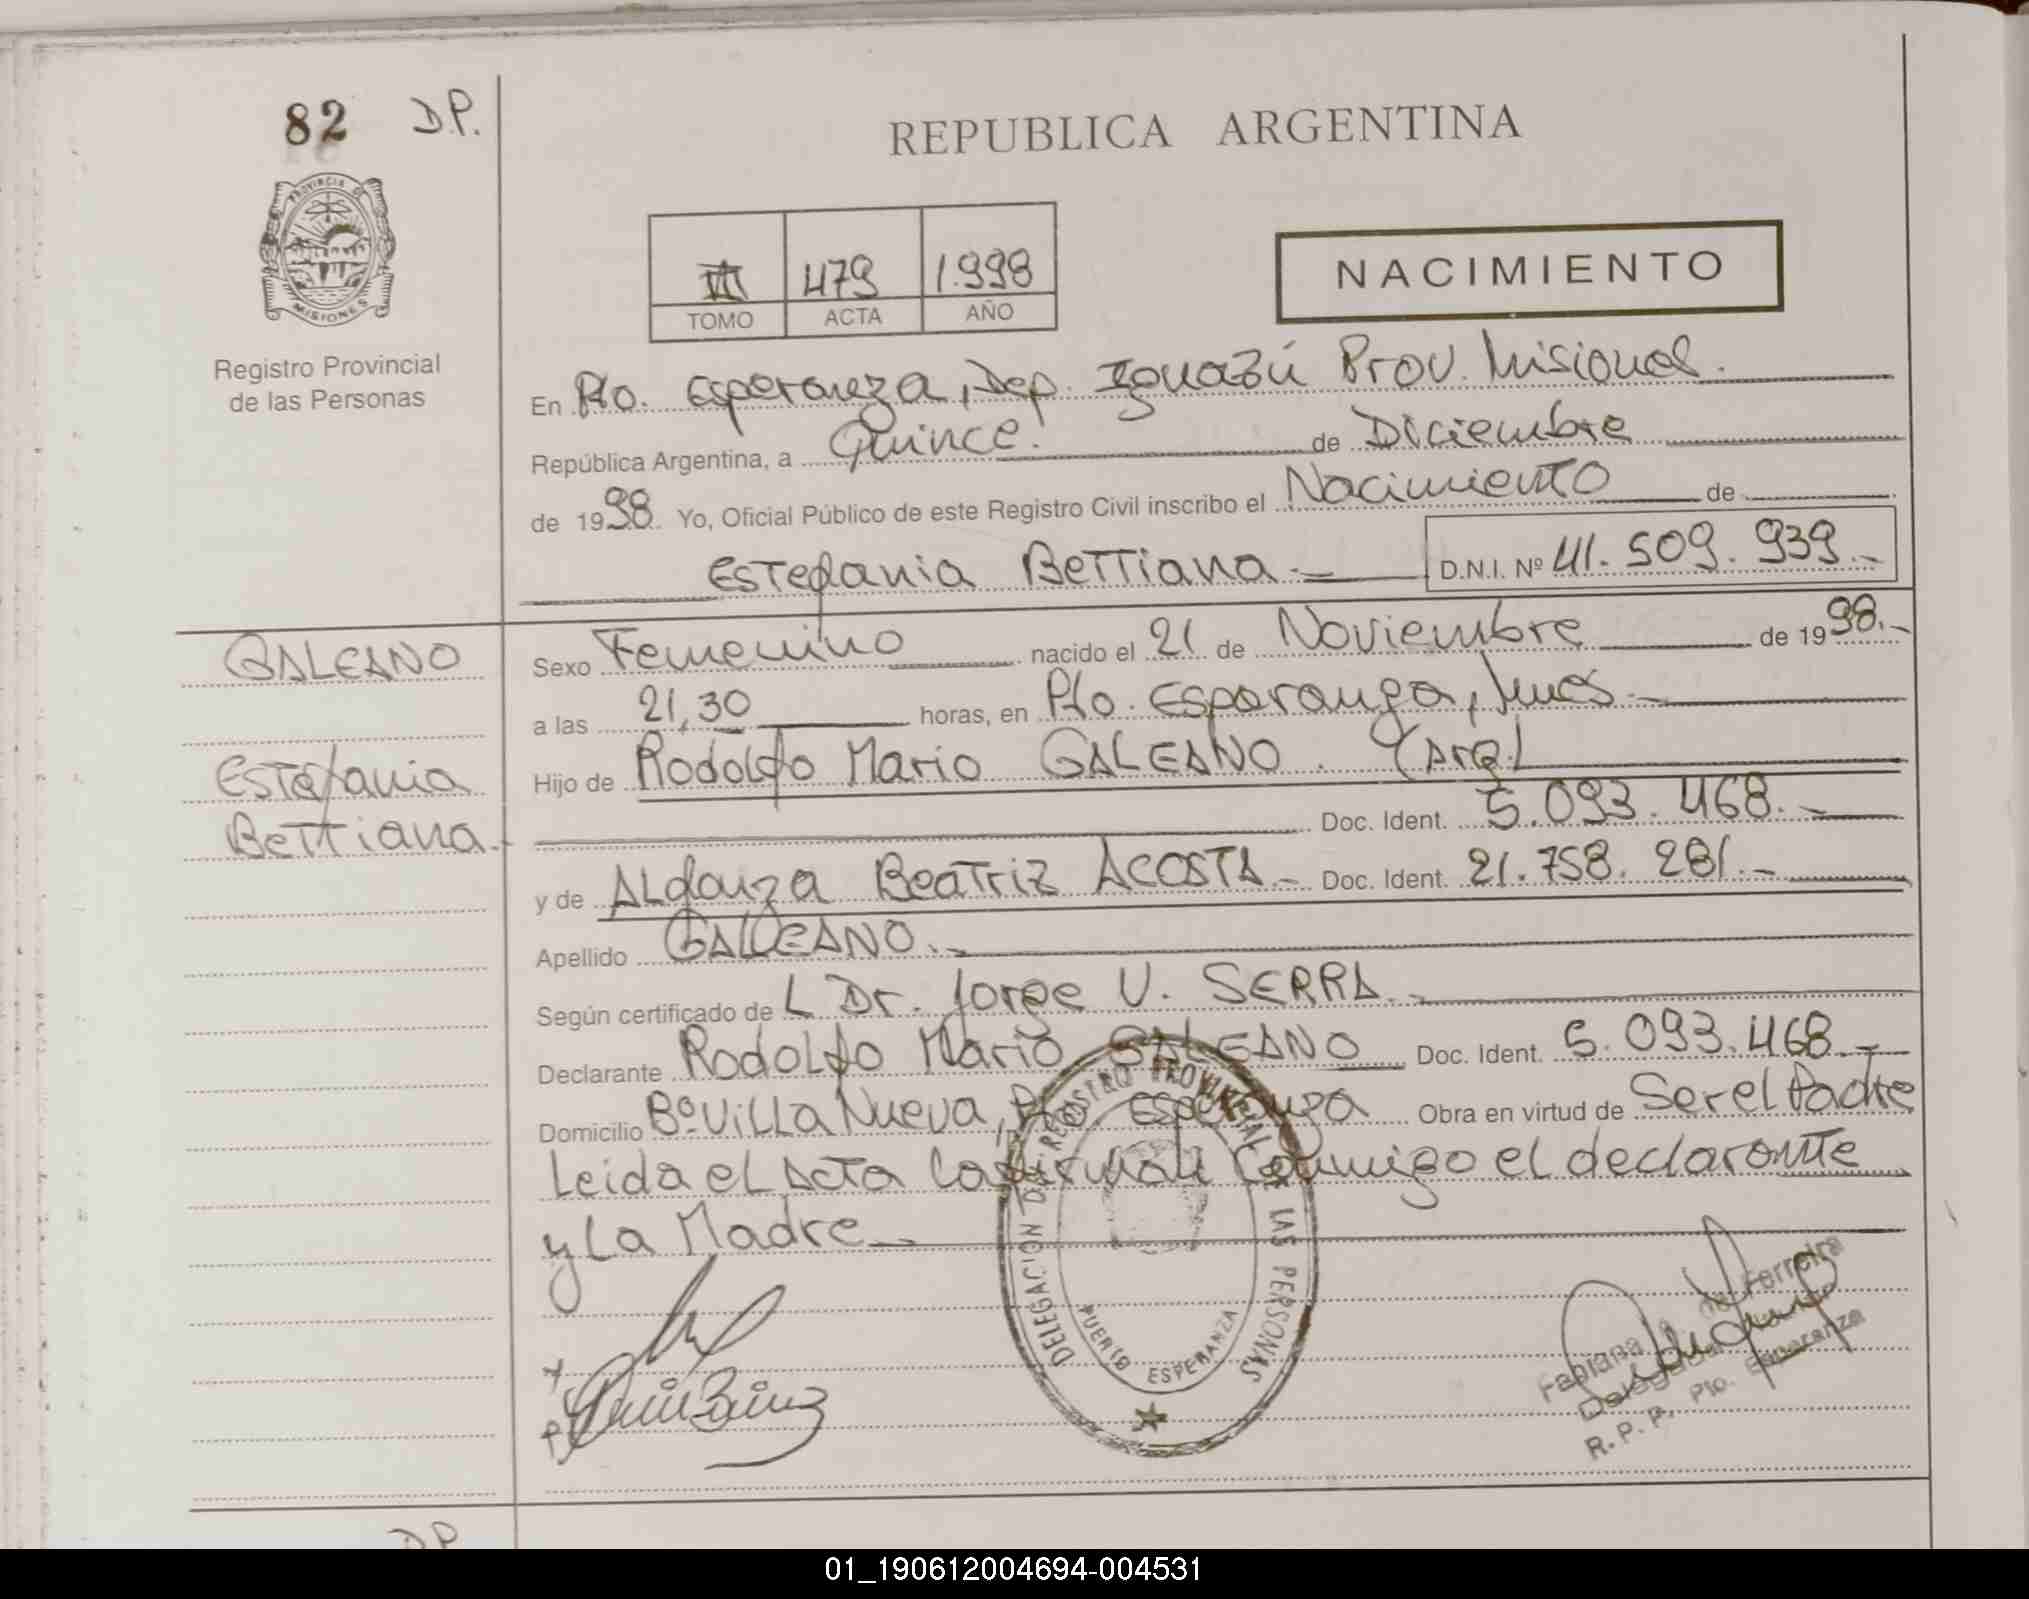 82 D.P.
REPUBLICA ARGENTINA
PROVINCIA DE
MISIONES
Registro Provincial
de las Personas
VII 479 1.998
TOMO ACTA AÑO
NACIMIENTO
En Pto. Esperanza, Dep. Iguazú Prov. Misiones.
República Argentina, a Quince. de Diciembre
de 1998 Yo, Oficial Público de este Registro Civil inscribo el Nacimiento de
Estefania Bettiana D.N.I. Nº 41.509.939.-
GALEANO
Estefania
Bettiana.-
Sexo Femenino nacido el 21 de Noviembre de 1998.-
a las 21,30 horas, en Pto. Esperanza, Mnes.-
Hijo de Rodolfo Mario GALEANO. (Arg)
Doc. Ident. 5.093.468.-
y de ALdanza Beatriz ACOSTA.- Doc. Ident. 21.758.281.-
Apellido GALEANO.-
Según certificado de L Dr. Jorge V. SERRA.-
Declarante Rodolfo Mario GALEANO Doc. Ident. 5.093.468.-
Domicilio Bº Villa Nueva, Pto Esperanza Obra en virtud de Ser el Padre
Leida el Acta La firman Conmigo el declarante
y La Madre.-
DELEGACION DEL REGISTRO PROVINCIAL DE LAS PERSONAS
PUERTO ESPERANZA
Fabiana de Ferreira
Delegada
R.P.P. Pto. Esperanza
DP
01_190612004694-004531